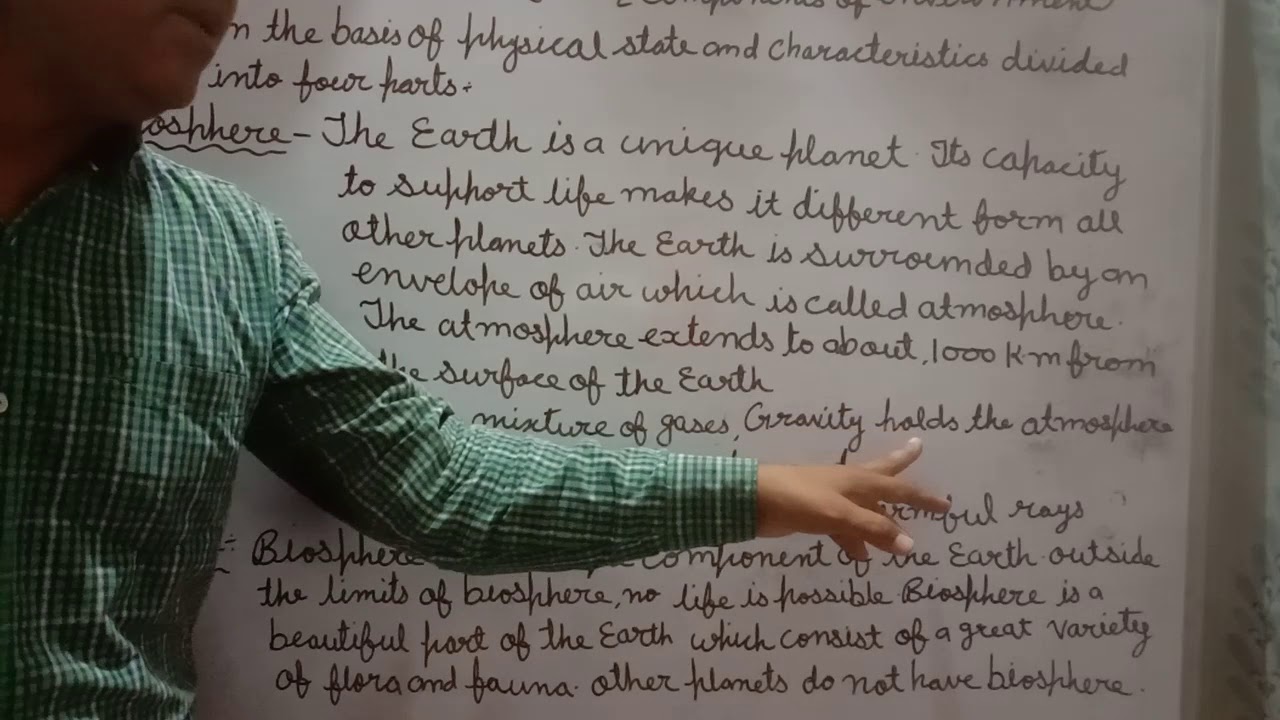 components of environment
n the basis of physical state and characteristics divided
into four parts:
osphere - The Earth is a unique planet. Its capacity
to support life makes it different form all
other planets. The Earth is surrounded by an
envelope of air which is called atmosphere.
The atmosphere extends to about, 1000 Km from
the surface of the Earth
mixture of gases, Gravity holds the atmosphere
rmful rays
Biosphere component of the Earth. outside
the limits of biosphere, no life is possible Biosphere is a
beautiful part of the Earth which consist of a great variety
of flora and fauna. other planets do not have biosphere.